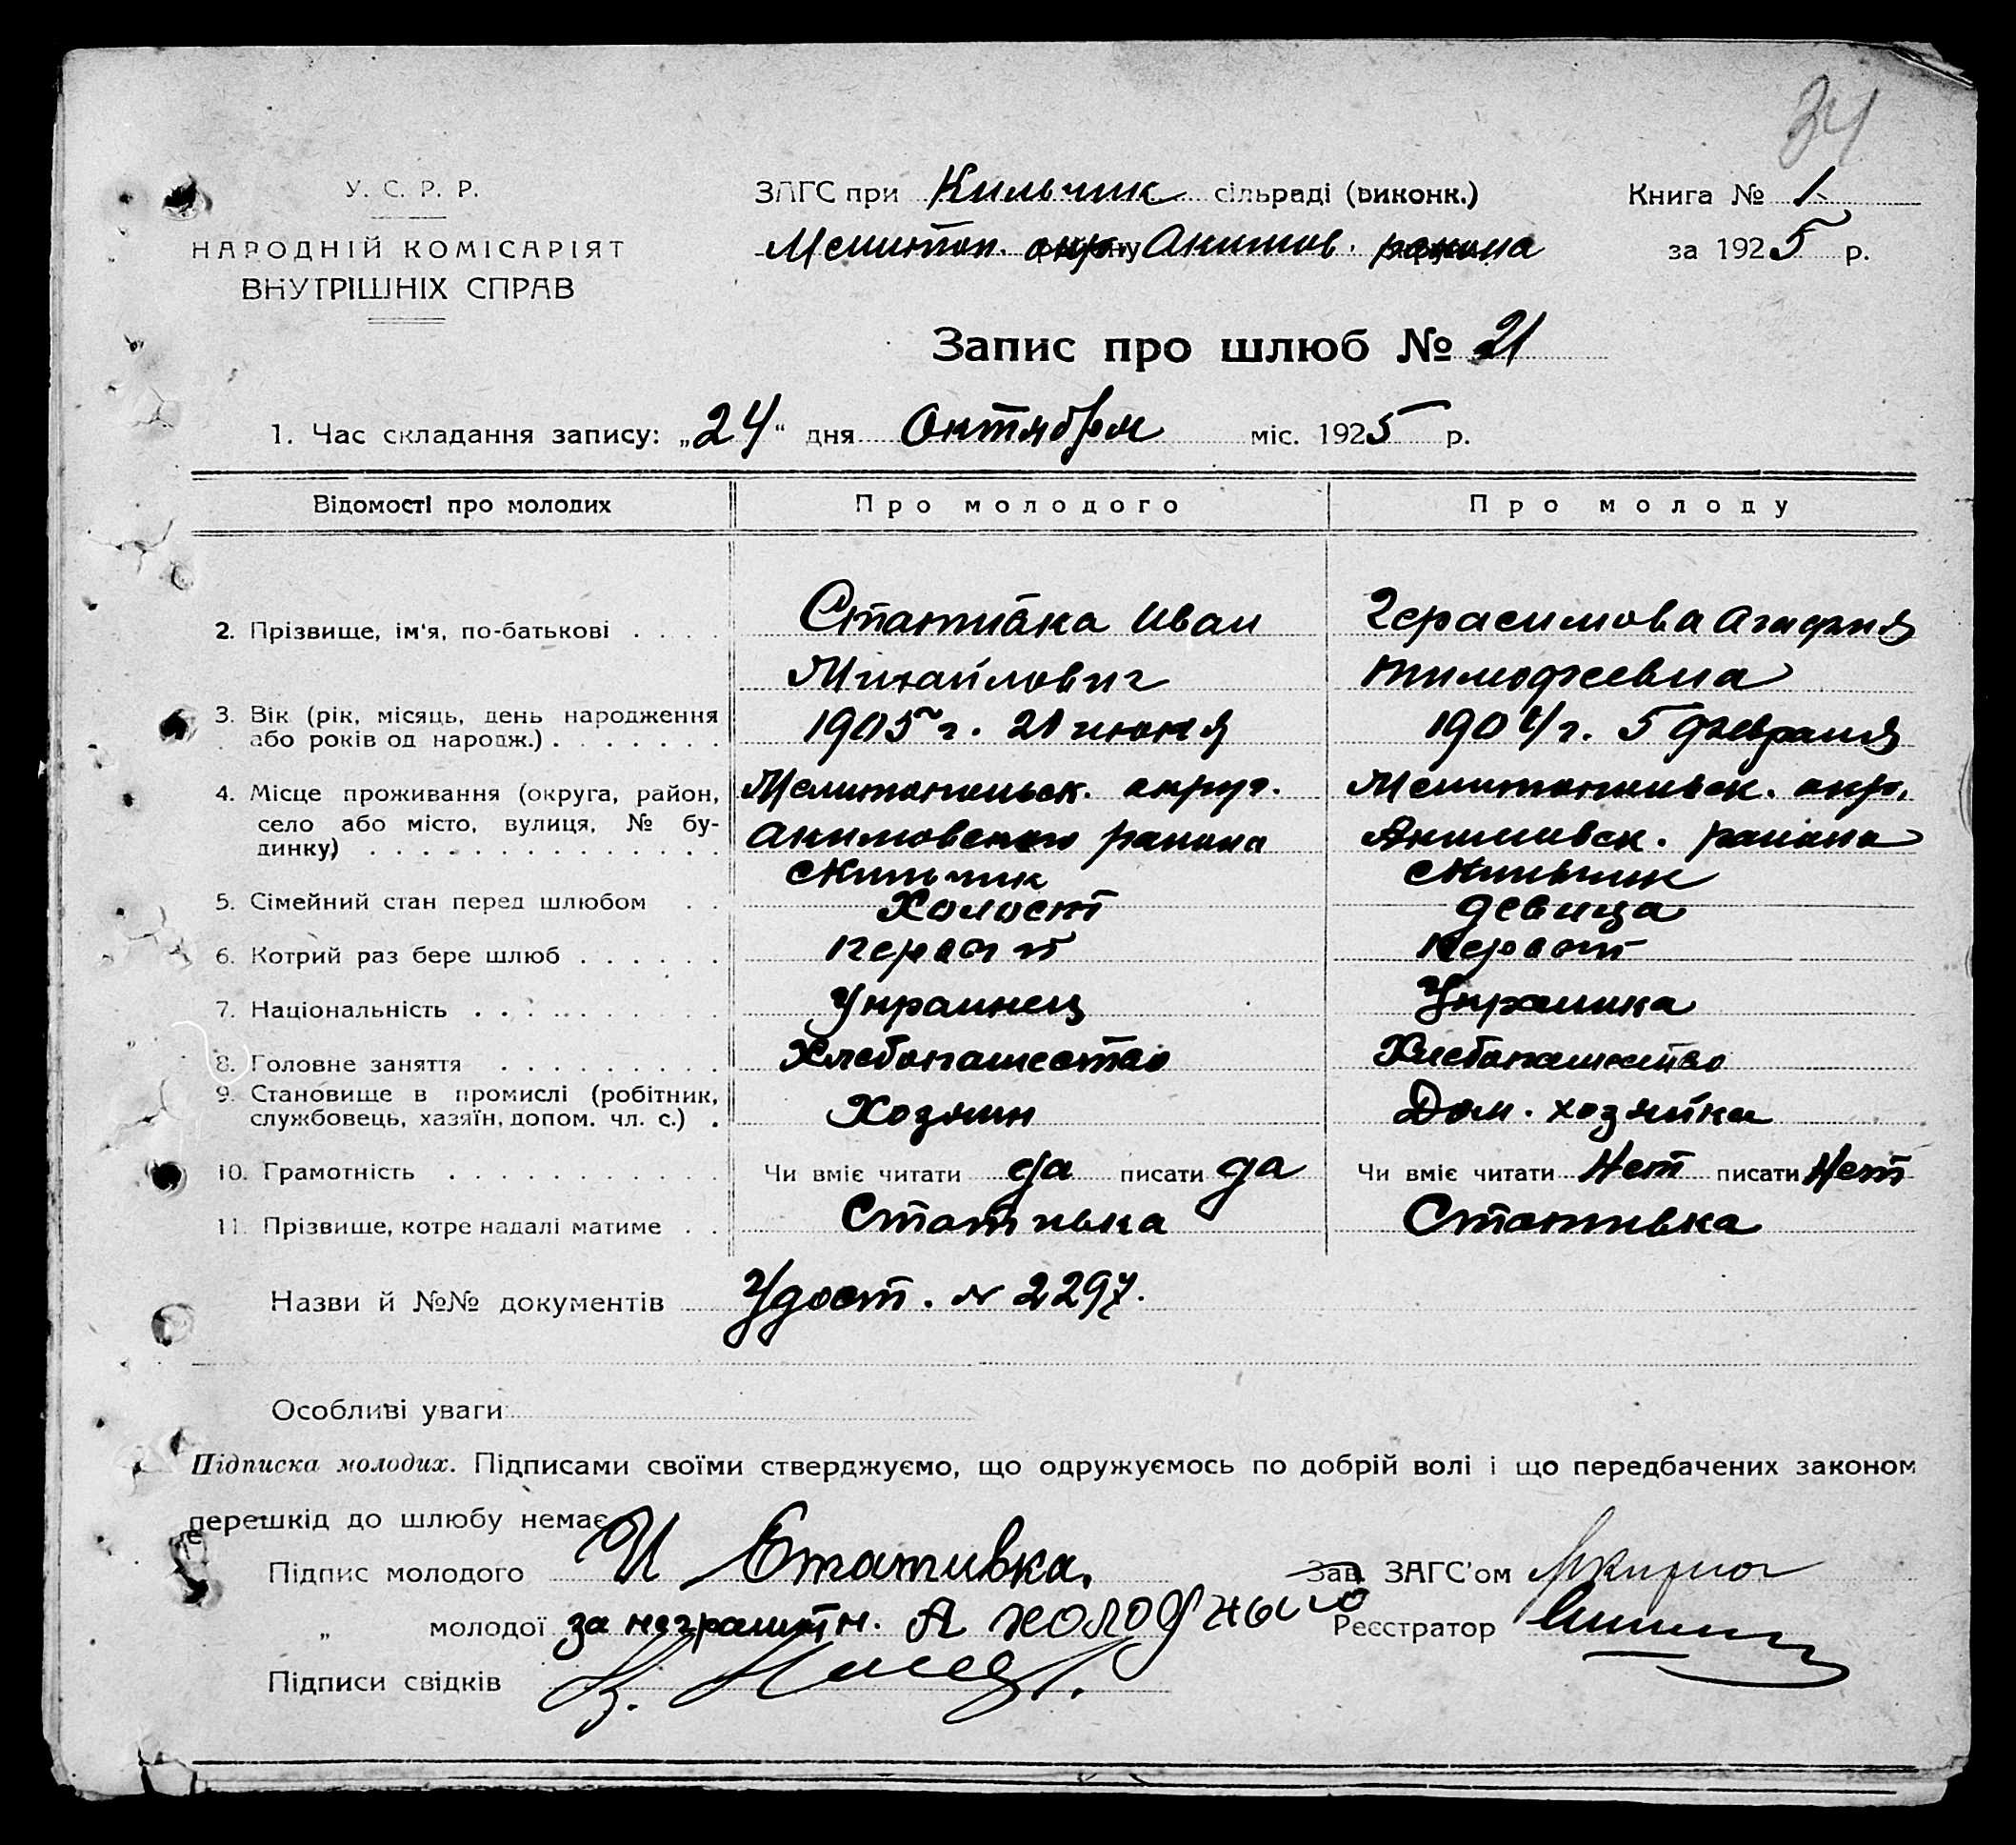 34
У. С. Р. Р.
НАРОДНІЙ КОМІСАРІЯТ
ВНУТРІШНІХ СПРАВ
ЗАГС при Кильчик сільраді (виконк.)
Мелитоп. окр. Акимов. района
Книга № 1
за 1925 р.
Запис про шлюб № 21
1. Час складання запису: „24“ дня Октября міс. 1925 р.
Відомості про молодих Про молодого Про молоду
2. Прізвище, ім'я, по-батькові . . . . Стативка Иван Герасимова Агафия
Михайлович Тимофеевна
3. Вік (рік, місяць, день народження 1905 г. 21 июня 1904 г. 5 февраля
або років од народж.) . . . . . . .
4. Місце проживання (округа, район, Мелитопольск. округ. Мелитопольск. окр.
село або місто, вулиця, № бу-
динку) . . . . . . . . . . . . . . Акимовского района Акимовск. района
с Кильчик с Кильчик
5. Сімейний стан перед шлюбом . . Холост девица
6. Котрий раз бере шлюб . . . . . . первый первый
7. Національність . . . . . . . . . . Украинец Украинка
8. Головне заняття . . . . . . . . . Хлебопашество Хлебопашество
9. Становище в промислі (робітник,
службовець, хазяїн, допом. чл. с.) . Хозяин Дом. хозяйка
10. Грамотність . . . . . . . . . . . Чи вміє читати да писати да Чи вміє читати Нет писати Нет
11. Прізвище, котре надалі матиме . . Стативка Стативка
Назви й №№ документів Удост. № 2297.
Особливі уваги
Підписка молодих. Підписами своїми стверджуємо, що одружуємось по добрій волі і що передбачених законом
перешкід до шлюбу немає
Підпис молодого И Стативка. Зав. ЗАГС'ом
„ молодої за неграмотн. А холодных Реєстратор
Підписи свідків